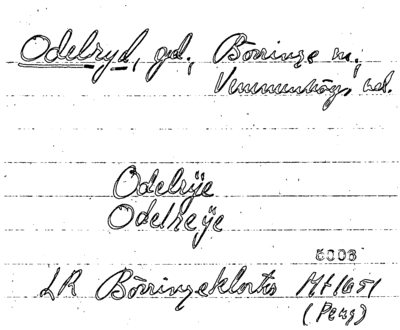 Odelryd, gd, Börringe sn,
Vemmenhögs hd.
Odelrÿe
Odelreÿe
5008
LR Börringekloster Mt 1651
(Peng)